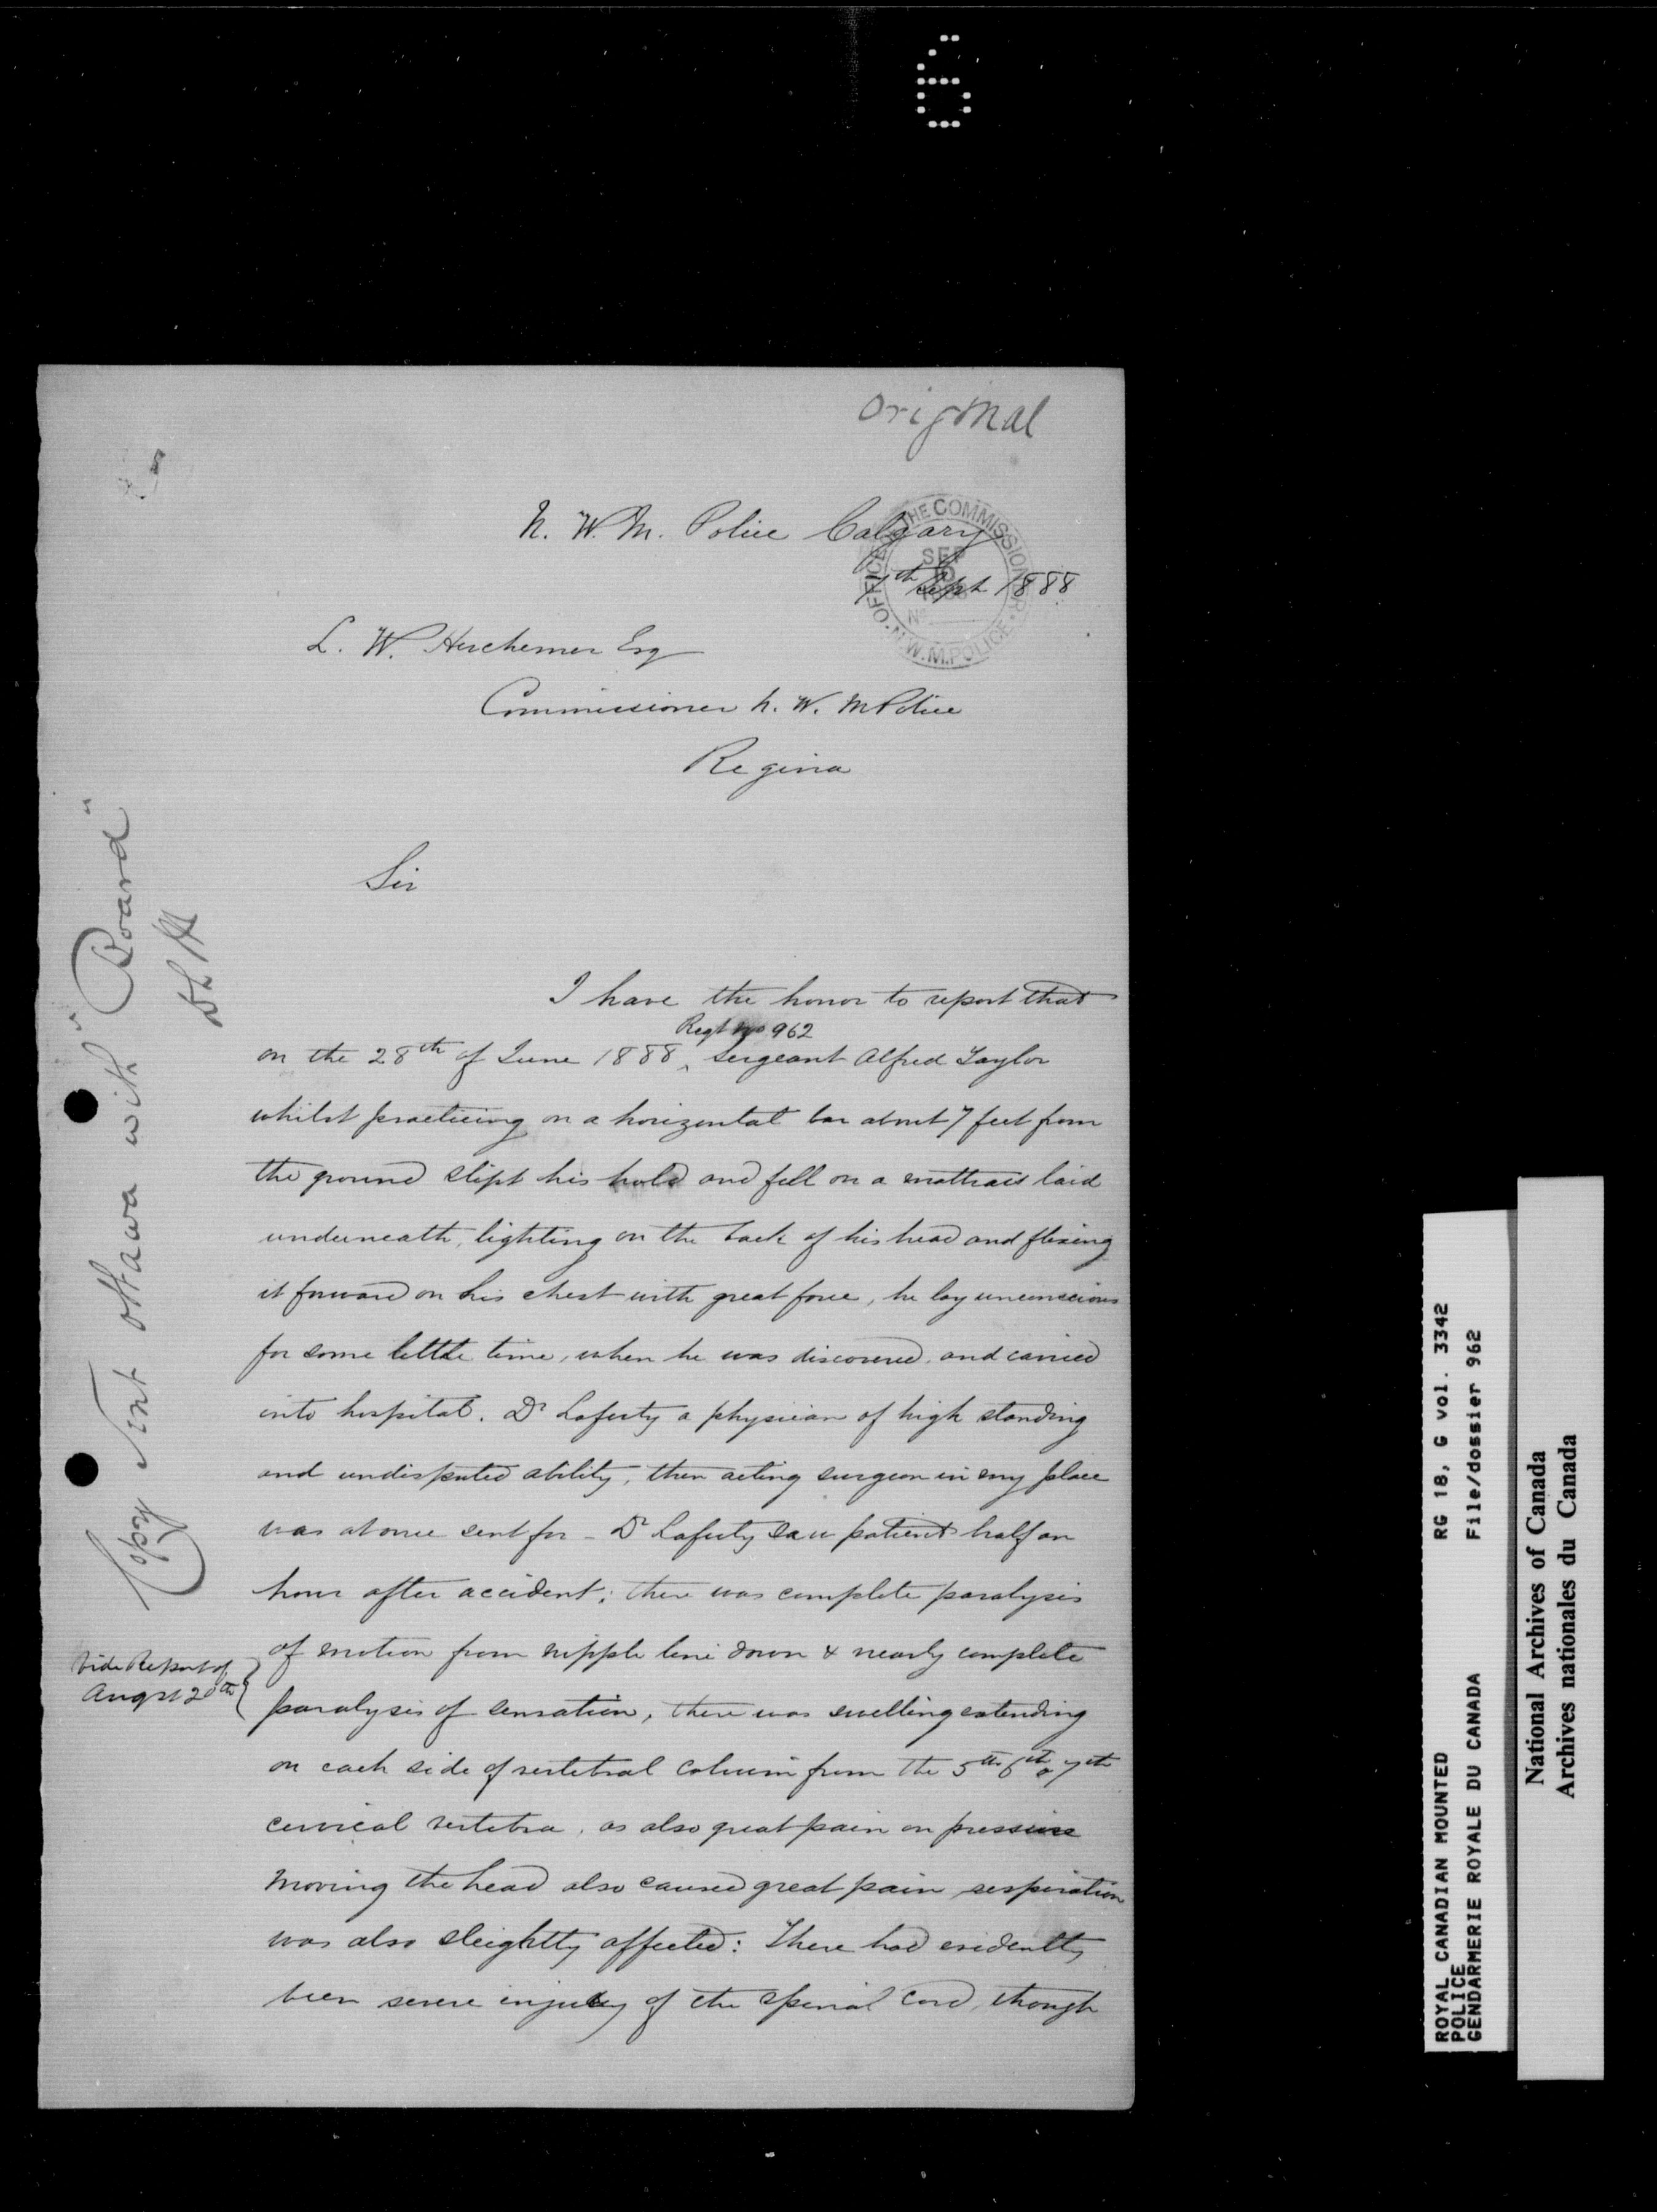 6
Original
N. W. M. Police Calgary
7th Sept 1888
OFFICE OF THE COMMISSIONER
SEP
10
1888
No
N.W.M. POLICE
L. W. Herchemer Esq
Commissioner N. W. M Police
Regina
Sir
I have the honor to report that
Regt No 962
on the 28th of June 1888, Sergeant Alfred Taylor
whilst practicing on a horizontal bar about 7 feet from
the ground slipt his hold and fell on a mattrass laid
underneath, lighting on the back of his head and flexing
it forward on his chest with great force, he lay unconscious
for some little time, when he was discovered, and carried
into hospital. Dr Lafferty a physician of high standing
and undisputed ability, then acting surgeon in my place
was at once sent for - Dr Lafferty saw patient half an
hour after accident; there was complete paralysis
of motion from nipple line down & nearly complete
paralysis of sensation, there was swelling extending
on each side of vertebral column from the 5th 6th & 7th
cervical vertebra, as also great pain on pressure
moving the head also caused great pain respiration
was also sleightly affected: There had evidently
been severe injury of the spinal cord, though
Vide Report of
Augst 20th
Copy sent Ottawa with "Board"
ROYAL CANADIAN MOUNTED
POLICE
GENDARMERIE ROYALE DU CANADA
RG 18, G vol. 3342
File/dossier 962
National Archives of Canada
Archives nationales du Canada